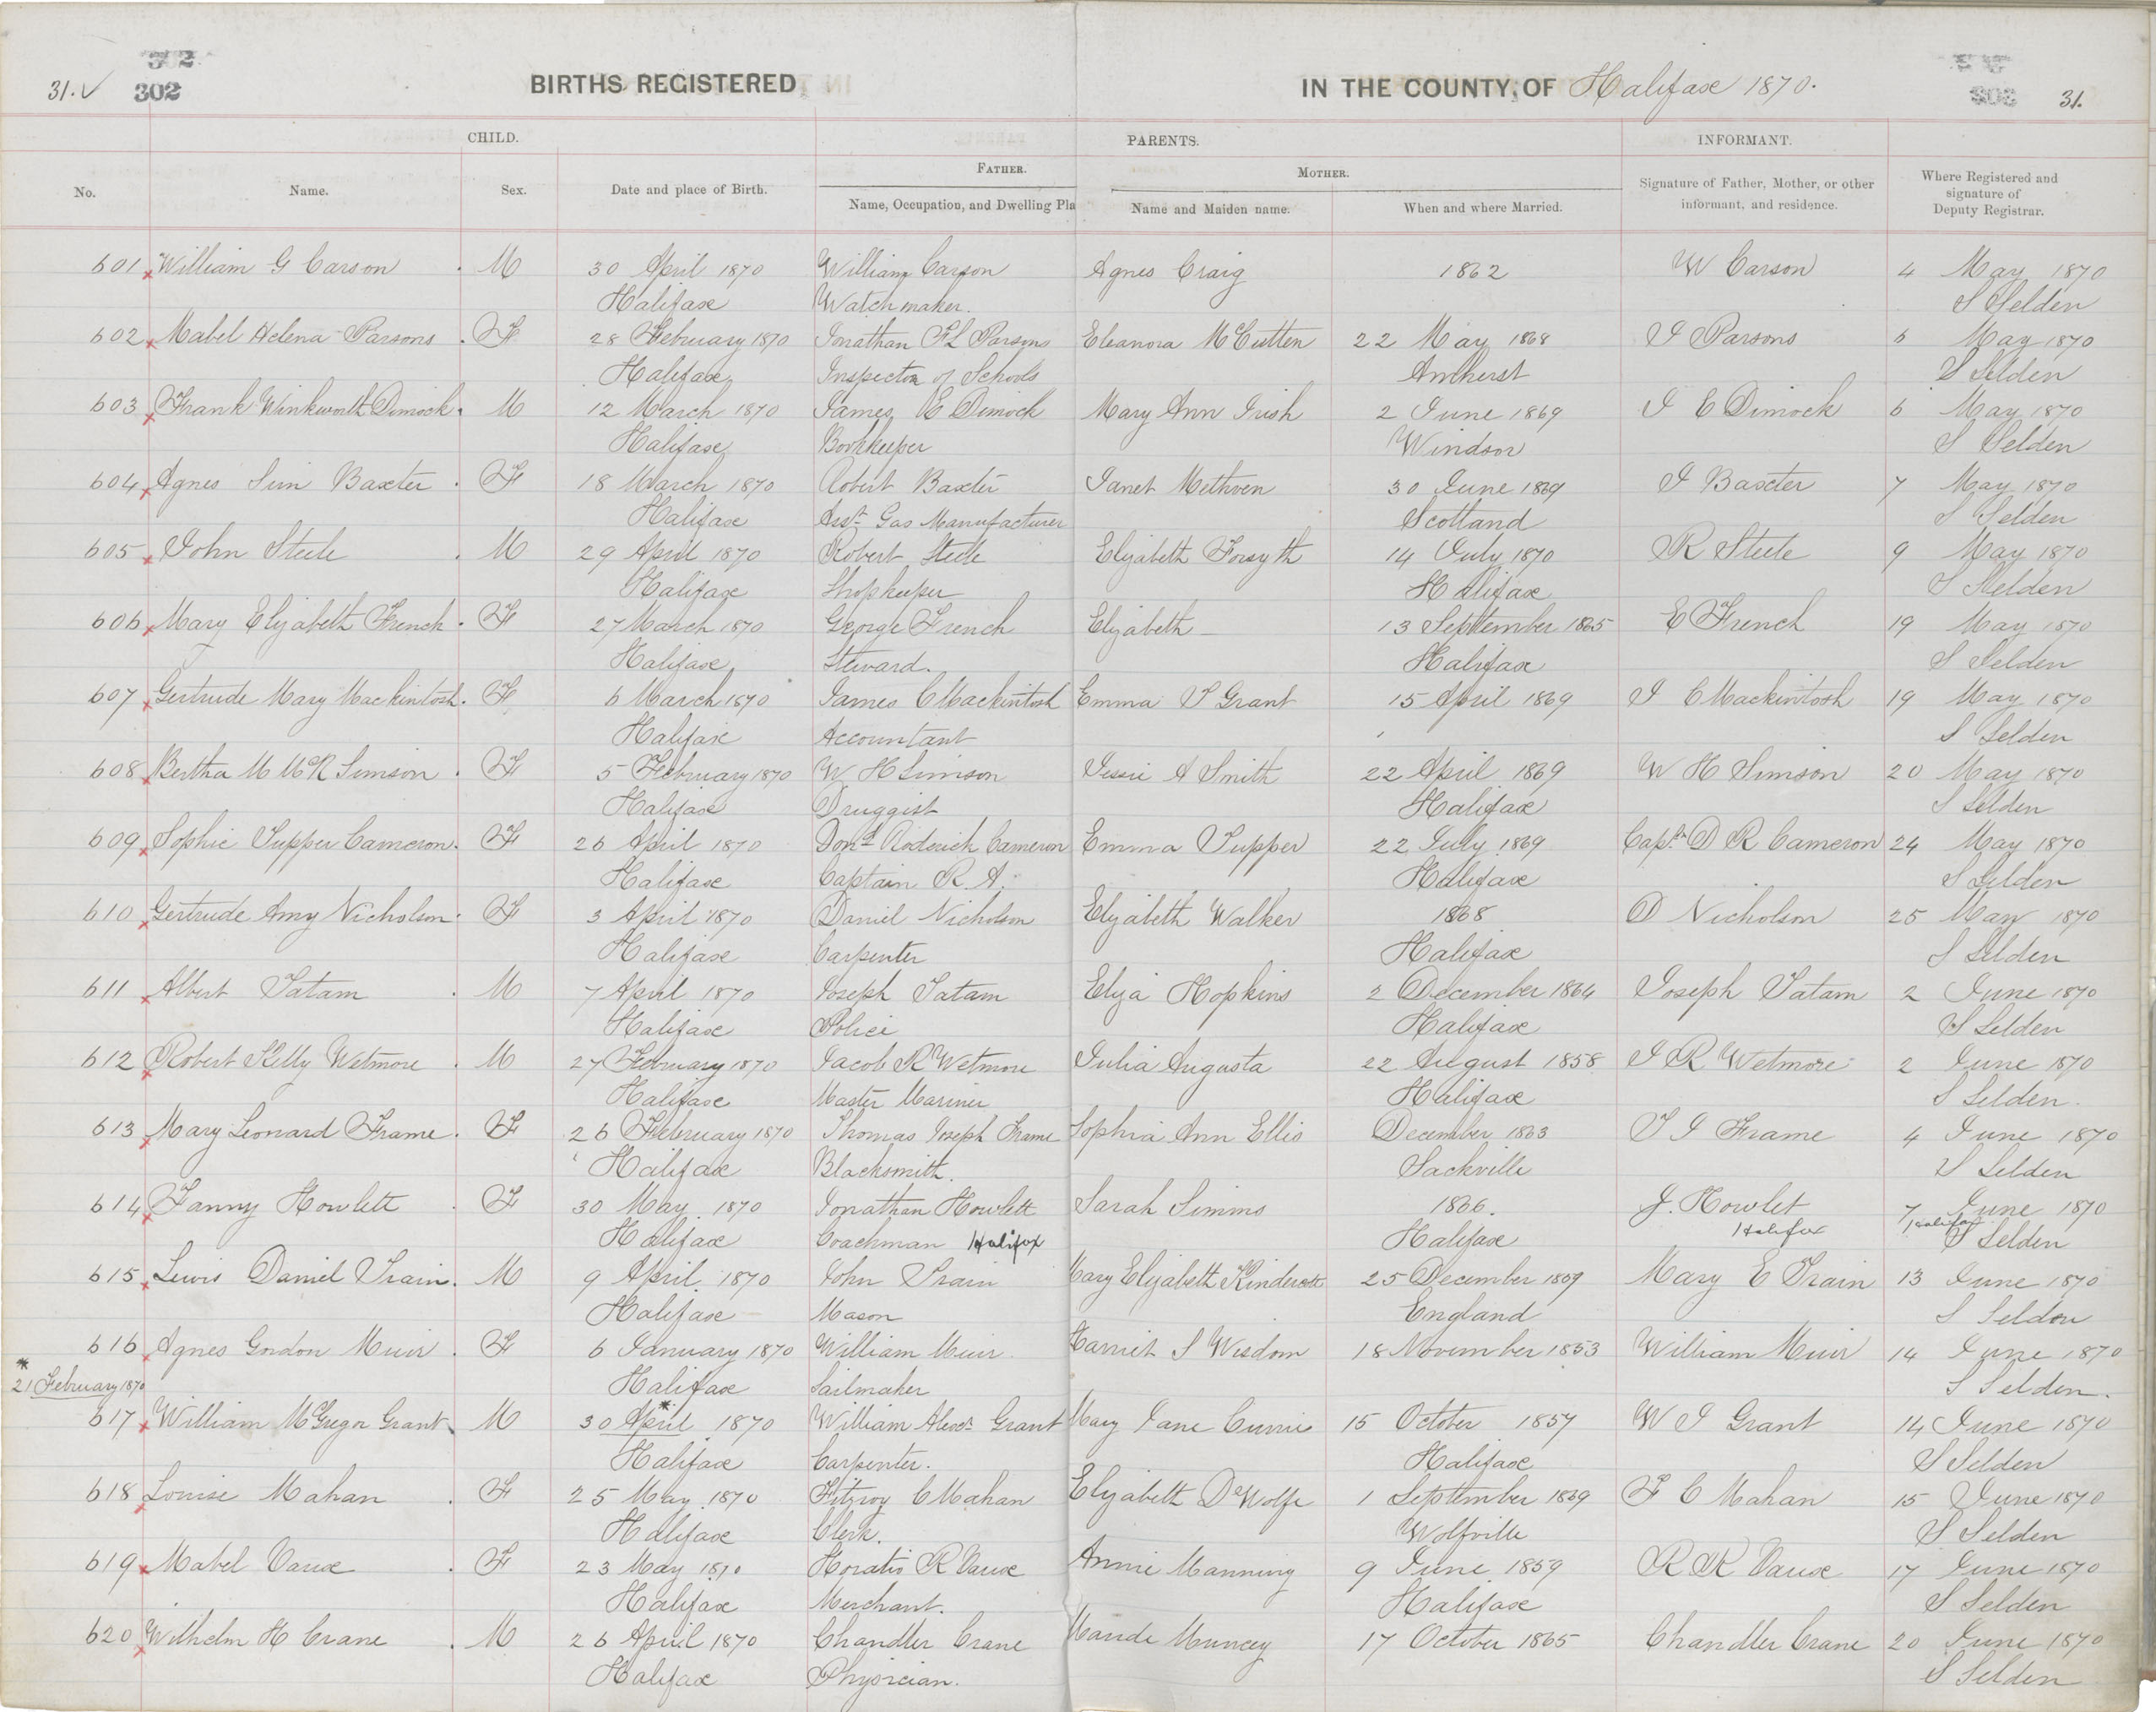 302
31. ✓ 302
BIRTHS REGISTERED IN THE COUNTY, OF Halifax 1870.
303 31.
CHILD. PARENTS. INFORMANT.
FATHER. MOTHER.
No. Name. Sex. Date and place of Birth. Name, Occupation, and Dwelling Pla Name and Maiden name. When and where Married. Signature of Father, Mother, or other informant, and residence. Where Registered and signature of Deputy Registrar.
601 William G Carson M 30 April 1870 William Carson Agnes Craig 1862 W Carson 4 May 1870
Halifax Watchmaker. S Selden
602 Mabel Helena Parsons F 28 February 1870 Jonathan F L Parsons Eleanora McCutten 22 May 1868 J Parsons 6 May 1870
Halifax Inspector of Schools Amherst S Selden
603 Frank Winkworth Dimock M 12 March 1870 James E Dimock Mary Ann Irish 2 June 1869 J E Dimock 6 May 1870
Halifax Bookkeeper Windsor S Selden
604 Agnes Sim Baxter F 18 March 1870 Robert Baxter Janet Methven 30 June 1869 J Baxter 7 May 1870
Halifax Asst. Gas Manufacturer Scotland S Selden
605 John Steele M 29 April 1870 Robert Steele Elizabeth Forsyth 14 July 1870 R Steele 9 May 1870
Halifax Shopkeeper Halifax S Selden
606 Mary Elizabeth French F 27 March 1870 George French Elizabeth — 13 September 1865 E French 19 May 1870
Halifax Steward. Halifax S Selden
607 Gertrude Mary Mackintosh F 6 March 1870 James C Mackintosh Emma S Grant 15 April 1869 J C Mackintosh 19 May 1870
Halifax Accountant S Selden
608 Bertha M McR Simson F 5 February 1870 W H Simson Jessie A Smith 22 April 1869 W H Simson 20 May 1870
Halifax Druggist Halifax S Selden
609 Sophie Tupper Cameron F 26 April 1870 Dond Roderick Cameron Emma Tupper 22 July 1869 Captn D R Cameron 24 May 1870
Halifax Captain R. A. Halifax S Selden
610 Gertrude Amy Nicholson F 3 April 1870 Daniel Nicholson Elizabeth Walker 1868 D Nicholson 25 May 1870
Halifax Carpenter Halifax S Selden
611 Albert Tatam M 7 April 1870 Joseph Tatam Eliza Hopkins 2 December 1864 Joseph Tatam 2 June 1870
Halifax Police Halifax S Selden
612 Robert Kelly Wetmore M 27 February 1870 Jacob R Wetmore Julia Augusta 22 August 1858 J R Wetmore 2 June 1870
Halifax Master Mariner Halifax S Selden.
613 Mary Leonard Frame F 26 February 1870 Thomas Joseph Frame Sophia Ann Ellis December 1863 T J Frame 4 June 1870
Halifax Blacksmith. Sackville S Selden
614 Fanny Howlett F 30 May 1870 Jonathan Howlett Sarah Simms 1866. J. Howlet 7 June 1870
Halifax Coachman Halifax Halifax Halifax Halifax S Selden
615 Lewis Daniel Train M 9 April 1870 John Train Mary Elizabeth 25 December 1869 Mary E Train 13 June 1870
Halifax Mason England S Selden
616 Agnes Gordon Muir F 6 January 1870 William Muir Harriet S Wisdom 18 November 1853 William Muir 14 June 1870
* 21 February 1870 Halifax Sailmaker S Selden.
617 William McGregor Grant M 30 April* 1870 William Alexr Grant Mary Jane Currie 15 October 1857 W J Grant 14 June 1870
Halifax Carpenter. Halifax S Selden
618 Louise Mahan F 25 May 1870 Fitzroy C Mahan Elizabeth DeWolfe 1 September 1869 F C Mahan 15 June 1870
Halifax Clerk. Wolfville S Selden
619 Mabel Vaux F 23 May 1870 Horatio R Vaux Annie Manning 9 June 1859 R Vaux 17 June 1870
Halifax Merchant. Halifax S Selden
620 Wilhelm H Crane M 26 April 1870 Chandler Crane Maude Muncey 17 October 1865 Chandler Crane 20 June 1870
Halifax Physician. S Selden